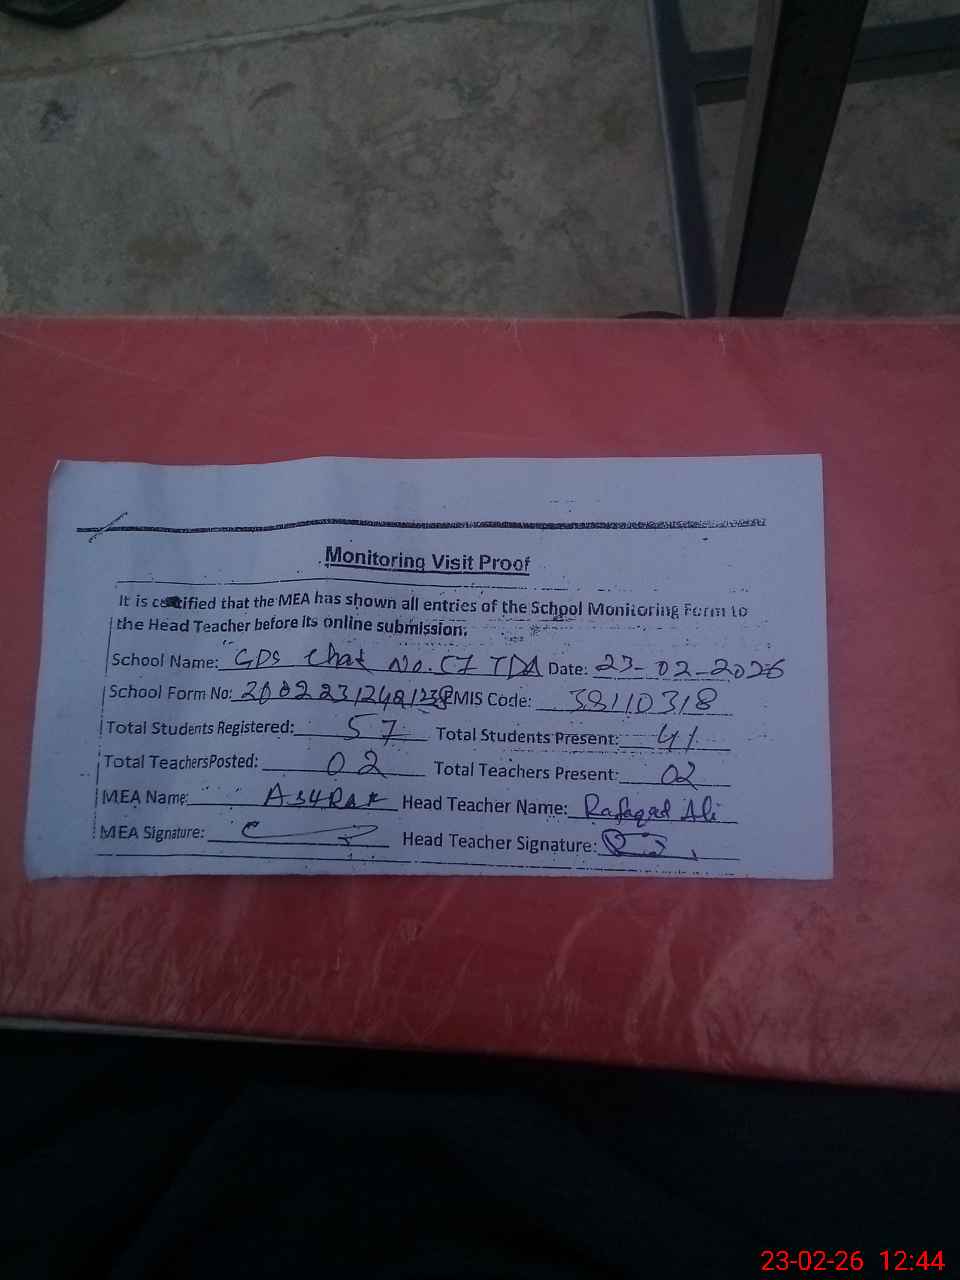 Monitoring Visit Proof
It is certified that the MEA has shown all entries of the School Monitoring Form to
the Head Teacher before its online submission.
School Name: GPS Chak No. 57 TDA Date: 23-02-2026
School Form No: EMIS Code: 38110318
Total Students Registered: 57 Total Students Present: 41
Total Teachers Posted: 02 Total Teachers Present: 02
MEA Name: Head Teacher Name: Rafaqat Ali
MEA Signature: Head Teacher Signature:
23-02-26 12:44